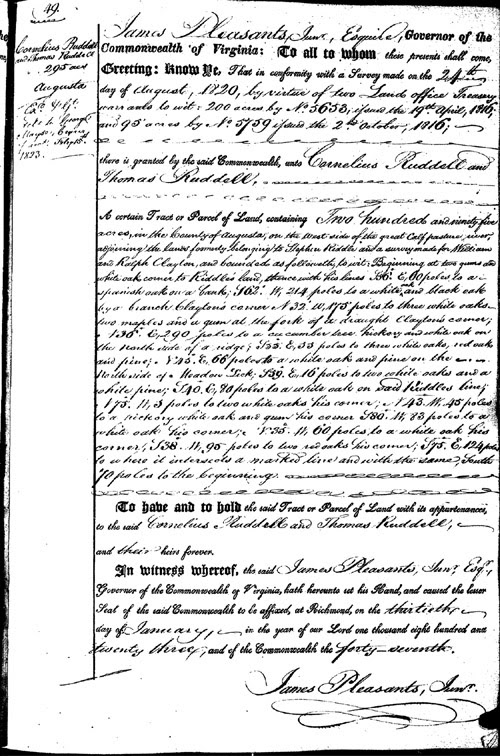 49.
Cornelius Ruddell
and Thomas Ruddell
295 acres
Augusta
1823.
James Pleasants, Junr., Esquire, Governor of the
Commonwealth of Virginia: To all to whom these presents shall come,
Greeting: Know Ye, That in conformity with a Survey made on the 24th
day of August, 1820, by virtue of two Land office Treasury
warrants to wit: 200 acres by No. 5653, issued the 19th April, 1816;
and 95 acres by No 5759 issued the 2nd October, 1816;
there is granted by the said Commonwealth, unto Cornelius Ruddell and
Thomas Ruddell,
A certain Tract or Parcel of Land, containing Two hundred and ninety five
acres, in the County of Augusta, on the West side of the great Calf pasture river
adjoining the lands formerly belonging to Stephen Kiddle and a survey made for William
and Ralph Clayton, and bounded as followeth, to wit: Beginning at two gums and
white oak corner to Kiddles land, thence with his lines S6° E, 60 poles to a
spanish oak on a bank; S62° W, 214 poles to a white oak and black oak
by a branch Clayton's corner N 32° W, 175 poles to three white oaks
two maples and a gum at the fork of a draught Clayton's corner;
N36° E, 290 poles to a cucumber tree hickory and white oak on
the North side of a ridge; S53° E, 33 poles to three white oaks, red oak
and pine; N 43° E, 66 poles to a white oak and pine on the
North side of a Meadow Lick; S39° E, 16 poles to two white oaks and a
white pine; S40° E, 70 poles to a white oak on said Kiddles line;
N75° W, 3 poles to two white oaks his corner; N 43° W, 45 poles
to a hickory white oak and gum his corner S80° W, 83 poles to a
white oak his corner; N55° W, 60 poles to a white oak his
corner; S38° W, 95 poles to two red oaks his corner; S75° E, 124 poles
to where it intersects a marked line and with the same South
70 poles to the beginning.
To have and to hold the said Tract or Parcel of Land with its appurtenances,
to the said Cornelius Ruddell and Thomas Ruddell,
and their heirs forever.
In witness whereof, the said James Pleasants, Junr. Esqr.,
Governor of the Commonwealth of Virginia, hath hereunto set his Hand, and caused the lesser
Seal of the said Commonwealth to be affixed, at Richmond, on the thirtieth
day of January, in the year of our Lord one thousand eight hundred and
twenty three, and of the Commonwealth the forty-seventh.
James Pleasants, Junr.